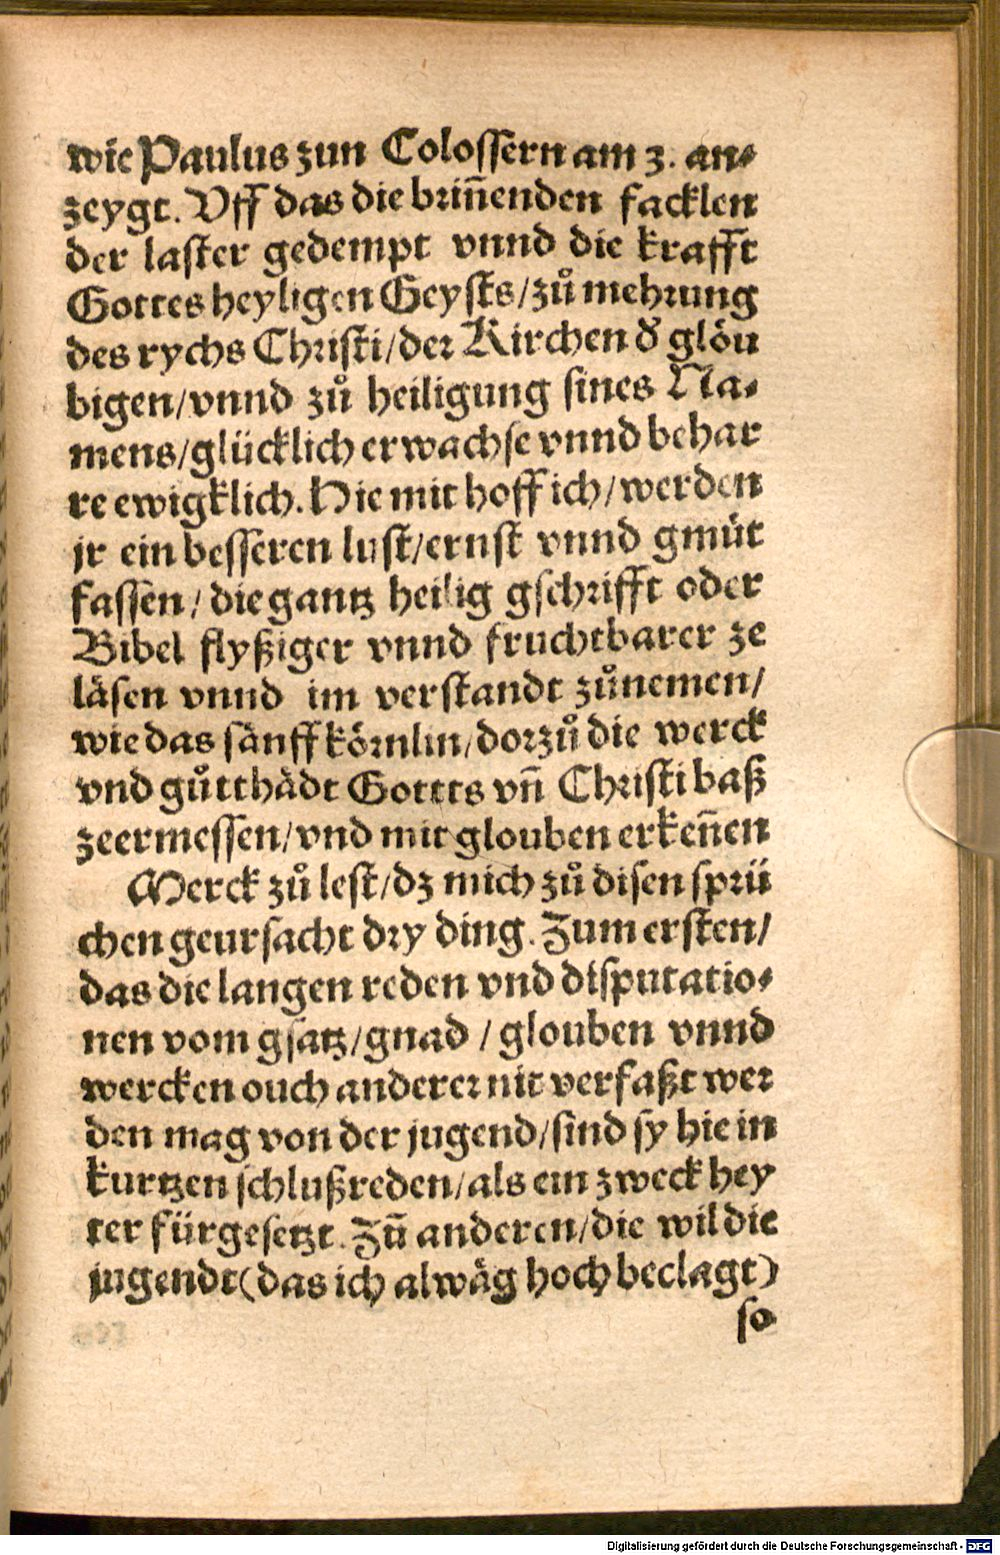 wie Paulus zun Colossern am 3. an⸗
zeygt. Vff das die briñenden facklen
der laster gedempt vnnd die krafft
Gottes heyligen Geysts/zů mehrung
des rychs Christi/der Kirchen d̓ glöu
bigen/vnnd zů heiligung sines Na⸗
mens/glücklich erwachse vnnd behar
re ewigklich. Hie mit hoff ich/werden
jr ein besseren lust/ernst vnnd gmüt
fassen/die gantz heilig gschrifft oder
Bibel flyßiger vnnd fruchtbarer ze
läsen vnnd im verstandt zůnemen/
wie das sänff körnlin/dorzů die werck
vnd gůtthädt Gottts vñ Christi baß
zeermessen/vnd mit glouben erkeñen
Merck zů lest/dz mich zů disen sprü
chen geursacht dry ding. Zum ersten/
das die langen reden vnd disputatio⸗
nen vom gsatz/gnad/glouben vnnd
wercken ouch anderer nit verfaßt wer
den mag von der jugend/sind sy hie in
kurtzen schlußreden/als ein zweck hey
ter fürgesetzt. Zũ anderen/die wil die
jugendt(das ich alwäg hoch beclagt)
so
Digitalisierung gefördert durch die Deutsche Forschungsgemeinschaft - DFG